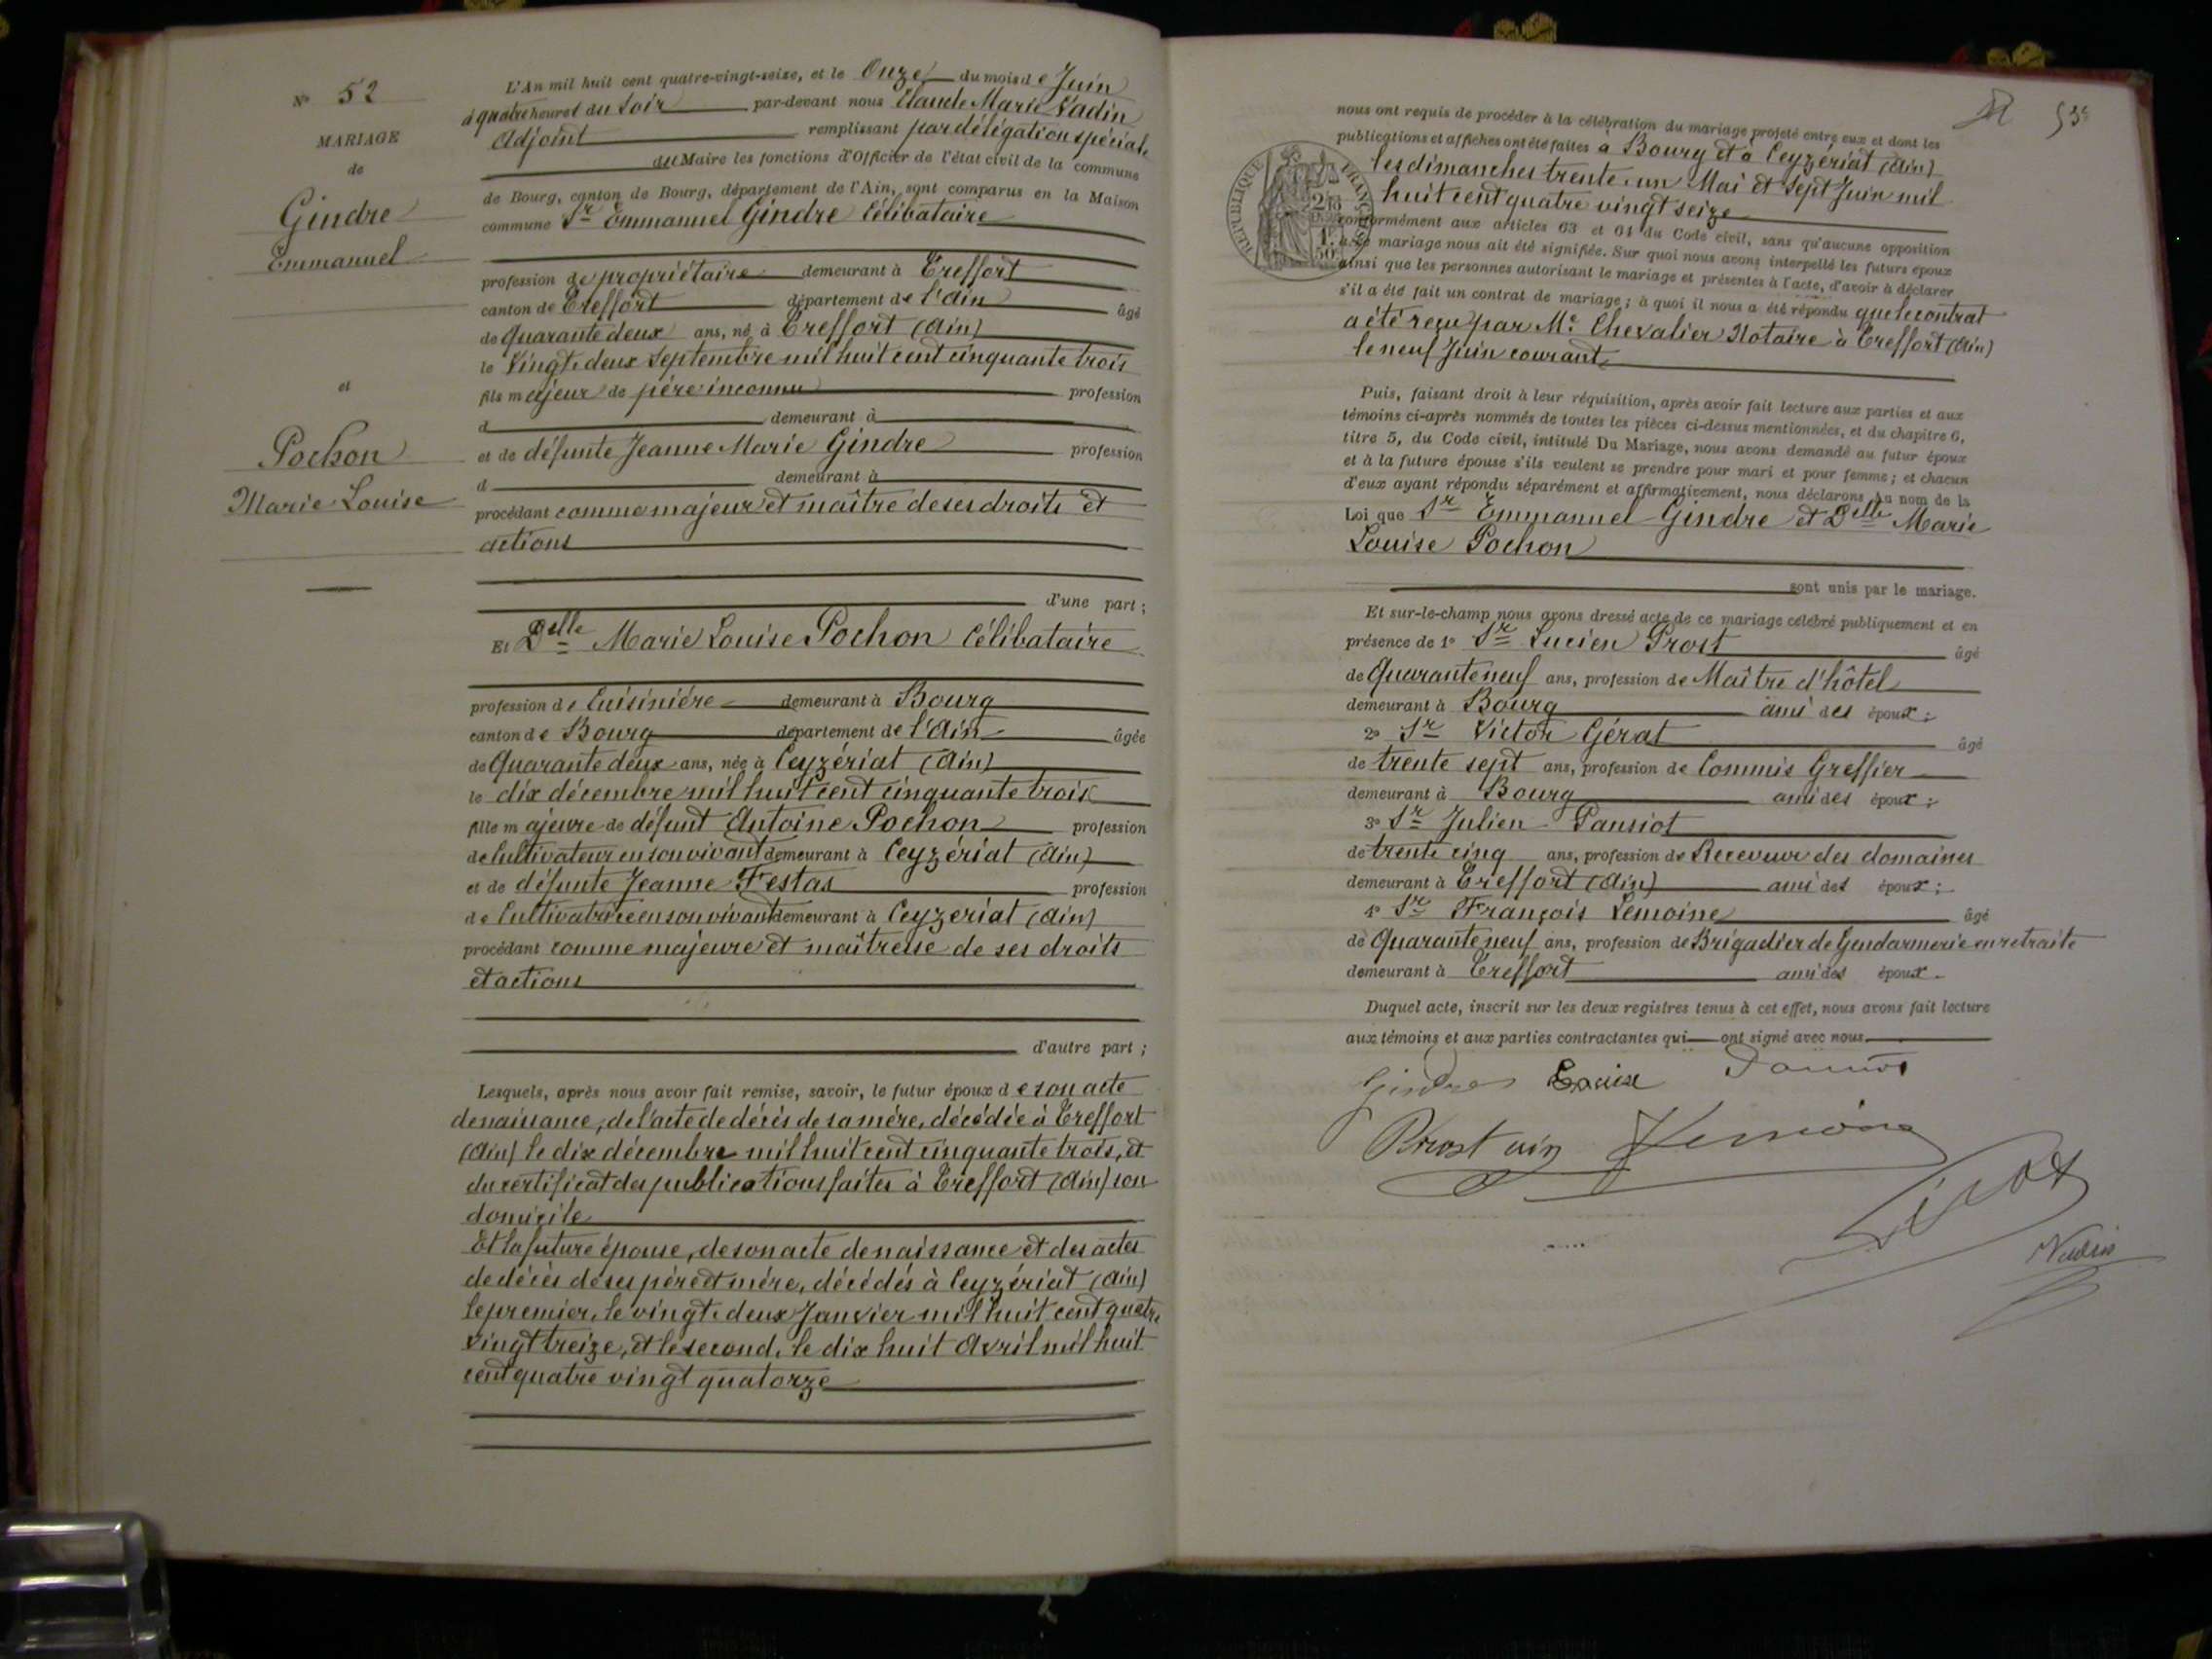 N° 52
MARIAGE
de
Gindre
Emmanuel
et
Pochon
Marie Louise
L'An mil huit cent quatre-vingt-seize, et le Onze du mois de Juin
à quatre heures du soir par-devant nous Claude Marie Vadin
Adjoint remplissant par délégation spéciale
du Maire les fonctions d'Officier de l'état civil de la commune
de Bourg, canton de Bourg, département de l'Ain, sont comparus en la Maison
commune Sr Emmanuel Gindre Célibataire
profession de propriétaire demeurant à Treffort
canton de Treffort département de l'Ain âgé
de Quarante deux ans, né à Treffort (Ain)
le Vingt deux Septembre mil huit cent cinquante trois
fils majeur de père inconnu profession
d demeurant à
et de défunte Jeanne Marie Gindre profession
d demeurant à
procédant comme majeur et maître de ses droits et
actions
d'une part ;
Et Delle Marie Louise Pochon Célibataire
profession de Cuisinière demeurant à Bourg
canton de Bourg département de l'Ain âgée
de Quarante deux ans, née à Ceyzériat (Ain)
le dix décembre mil huit cent cinquante trois
fille majeure de défunt Antoine Pochon profession
de Cultivateur en son vivant demeurant à Ceyzériat (Ain)
et de défunte Jeanne Festas profession
de Cultivatrice en son vivant demeurant à Ceyzeriat (Ain)
procédant comme majeure et maîtresse de ses droits
et actions
d'autre part ;
Lesquels, après nous avoir fait remise, savoir, le futur époux de son acte
de naissance, de l'acte de décès de sa mère, décédée à Treffort
(Ain) le dix décembre mil huit cent cinquante trois, et
du certificat des publications faites à Treffort (Ain) son
domicile
Et la future épouse, de son acte de naissance et des actes
de décès de ses père et mère, décédés à Ceyzériat (Ain)
le premier, le vingt deux Janvier mil huit cent quatre
vingt treize, et le second, le dix huit Avril mil huit
cent quatre vingt quatorze
53
nous ont requis de procéder à la célébration du mariage projeté entre eux et dont les
publications et affiches ont été faites à Bourg et à Ceyzériat (Ain)
les dimanches trente un Mai et Sept Juin mil
huit cent quatre vingt seize
REPUBLIQUE FRANÇAISE
conformément aux articles 63 et 64 du Code civil, sans qu'aucune opposition
à ce mariage nous ait été signifiée. Sur quoi nous avons interpellé les futurs époux
ainsi que les personnes autorisant le mariage et présentes à l'acte, d'avoir à déclarer
s'il a été fait un contrat de mariage ; à quoi il nous a été répondu que le contrat
a été reçu par Me Chevalier Notaire à Treffort (Ain)
le neuf Juin courant
Puis, faisant droit à leur réquisition, après avoir fait lecture aux parties et aux
témoins ci-après nommés de toutes les pièces ci-dessus mentionnées, et du chapitre 6,
titre 5, du Code civil, intitulé Du Mariage, nous avons demandé au futur époux
et à la future épouse s'ils veulent se prendre pour mari et pour femme ; et chacun
d'eux ayant répondu séparément et affirmativement, nous déclarons au nom de la
Loi que Sr Emmanuel Gindre et Delle Marie
Louise Pochon
sont unis par le mariage.
Et sur-le-champ nous avons dressé acte de ce mariage célébré publiquement et en
présence de 1° Sr Lucien Prost âgé
de Quarante neuf ans, profession de Maître d'hôtel
demeurant à Bourg ami des époux ;
2° Sr Victor Gérat âgé
de trente sept ans, profession de Commis Greffier
demeurant à Bourg ami des époux ;
3° Sr Julien Pansiot
de trente cinq ans, profession de Receveur des domaines
demeurant à Treffort (Ain) ami des époux ;
4° Sr François Lemoine âgé
de Quarante neuf ans, profession de Brigadier de Gendarmerie en retraite
demeurant à Treffort ami des époux.
Duquel acte, inscrit sur les deux registres tenus à cet effet, nous avons fait lecture
aux témoins et aux parties contractantes qui ont signé avec nous.
Gindre Louise
Prost Lemoine